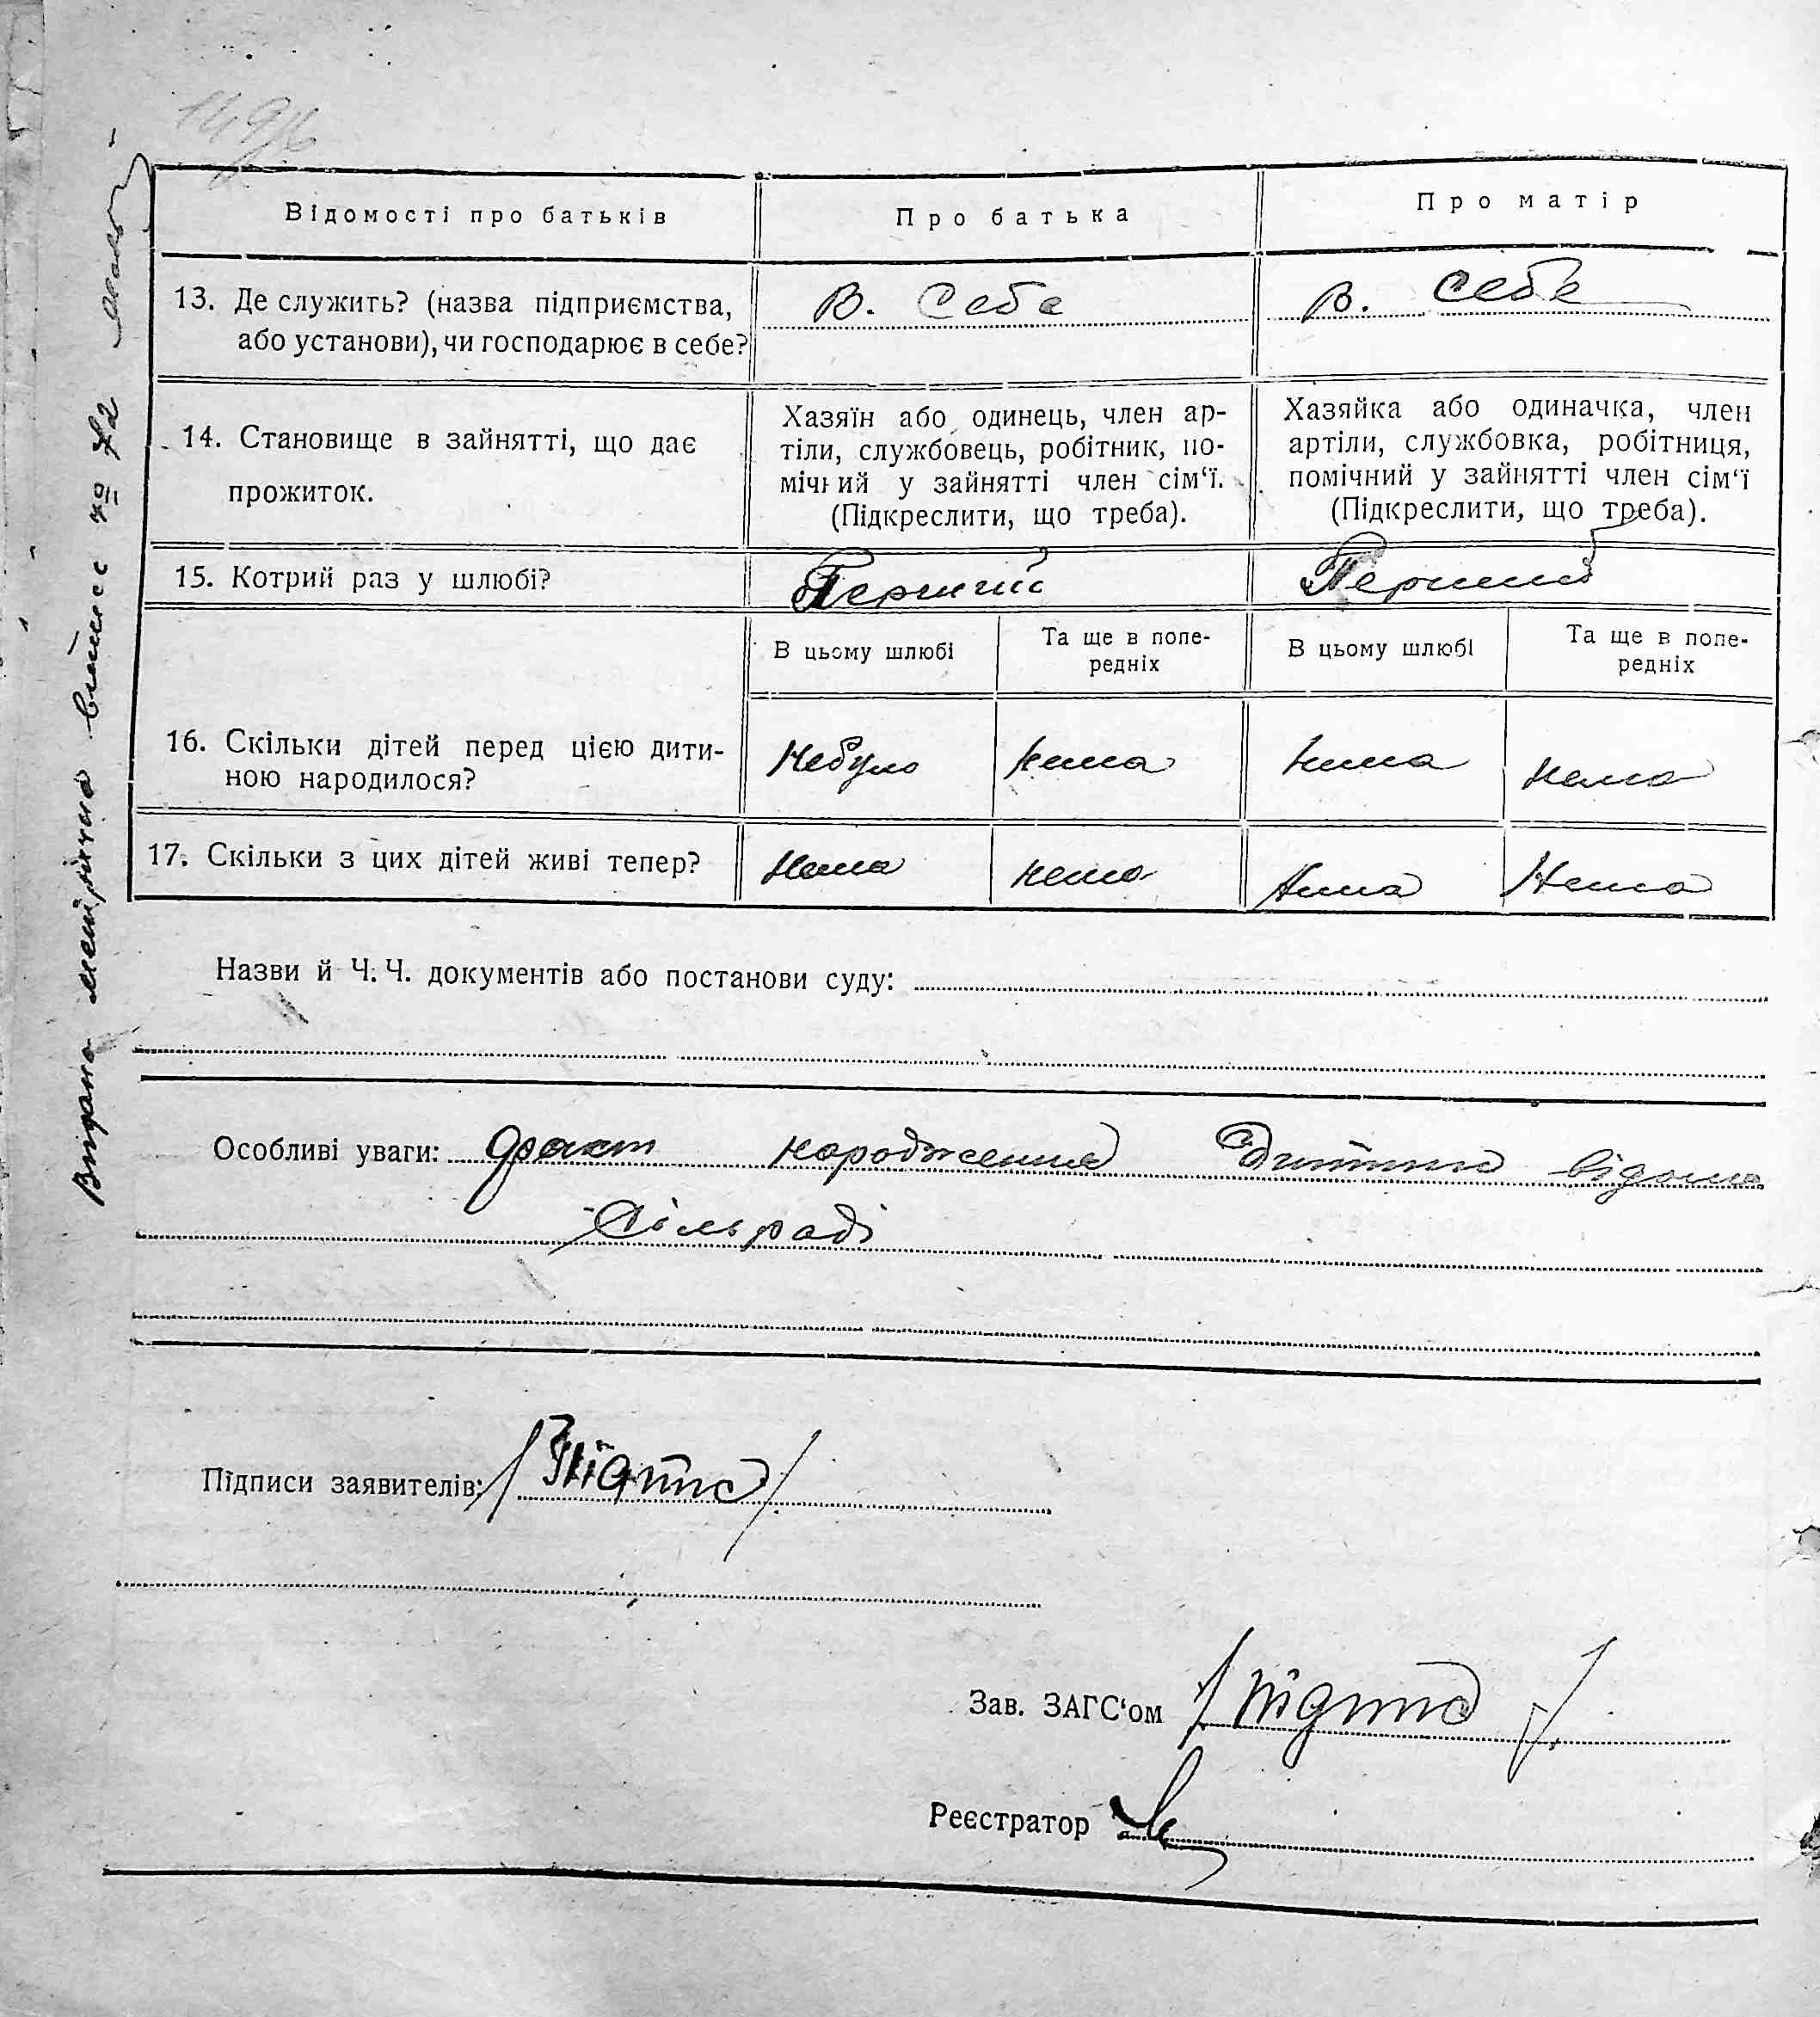 149/6
Відомості про батьків
Про батька
Про матір
13. Де служить? (назва підприємства,
або установи), чи господарює в себе?
В. Себе
В. Себе
14. Становище в зайнятті, що дає
прожиток.
Хазяїн або одинець, член ар-
тіли, службовець, робітник, по-
мічний у зайнятті член сім‘ї.
(Підкреслити, що треба).
Хазяйка або одиначка, член
артіли, службовка, робітниця,
помічний у зайнятті член сім‘ї
(Підкреслити, що треба).
15. Котрий раз у шлюбі?
Перший
Перший
В цьому шлюбі
Та ще в попе-
редніх
В цьому шлюбі
Та ще в попе-
редніх
16. Скільки дітей перед цією дити-
ною народилося?
Небуло
нема
нема
нема
17. Скільки з цих дітей живі тепер?
Нема
нема
Нема
Нема
Назви й Ч. Ч. документів або постанови суду:
Особливі уваги: факт народження дитини відома
Сільраді
Підписи заявителів: /Підпис/
Зав. ЗАГС‘ом /підпис/
Реєстратор
Видана метрична